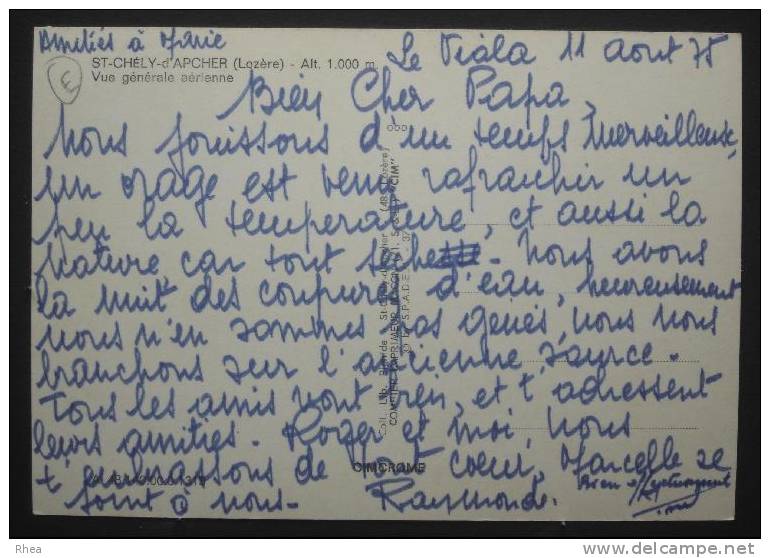 Amitiés à Marie
Le Viala 11 aout 75
ST-CHÉLY-d'APCHER (Lozère) - Alt. 1.000 m
Vue générale aérienne
E
Bien Cher Papa,
Nous jouissons d'un temps merveilleuse,
un orage est venu rafraichir un
peu la temperature, et aussi la
nature car tout seche. Nous avons
la nuit des coupures d'eau, heureusement
nous n'en sommes pas génés, nous nous
branchons sur l'ancienne source.
Tous les amis vont bien, et t'adressent
leurs amitiés. Roger et moi, nous
t'embrassons de tout coeur, Marcelle se
joint à nous. Raymonde.
Bien
CIMCROME
COMBIER IMPRIMEUR MACON "CIM"
Delcampe.net
Rhea